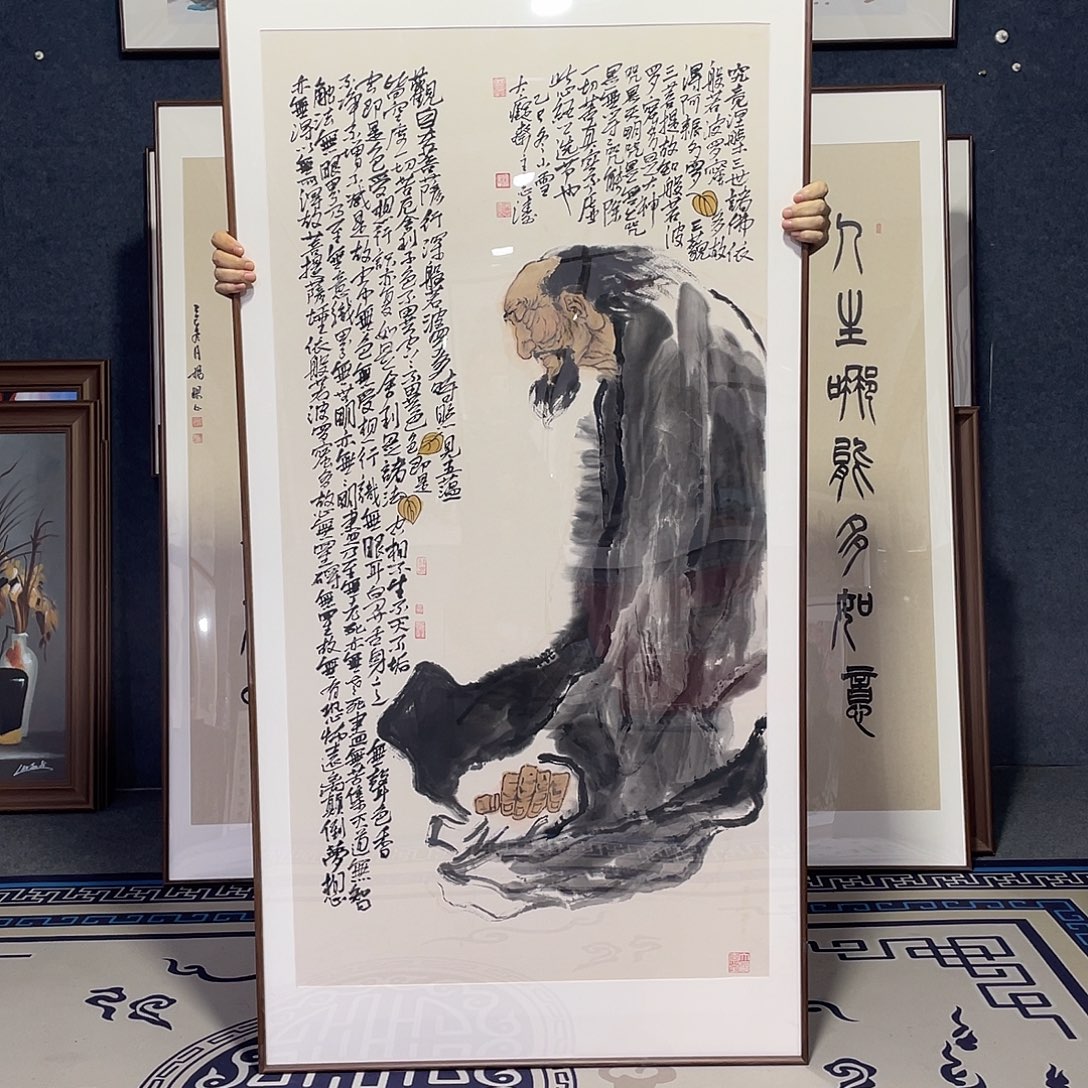 觀自在菩薩行深般若波羅蜜多時照見五蘊
皆空度一切苦厄舍利子色不異空空不異色色即是
空即是色受想行識亦復如是舍利子是諸法空相不生不滅不垢
不淨不增不減是故空中無色無受想行識無眼耳鼻舌身意無聲色香
觸法無眼界乃至無意識界無無明亦無無明盡乃至無老死亦無老死盡無苦集滅道無智
亦無得以無所得故菩提薩埵依般若波羅蜜多故心無罣礙無罣礙故無有恐怖遠離顛倒夢想
究竟涅槃三世諸佛依
般若波羅蜜多故
得阿耨多羅三藐
三菩提故知般若波
羅蜜多是大神
咒是大明咒是無上咒
是無等等咒能除
一切苦真實不虛
此心經之選節也
乙巳冬小雪
人生哪能多如意